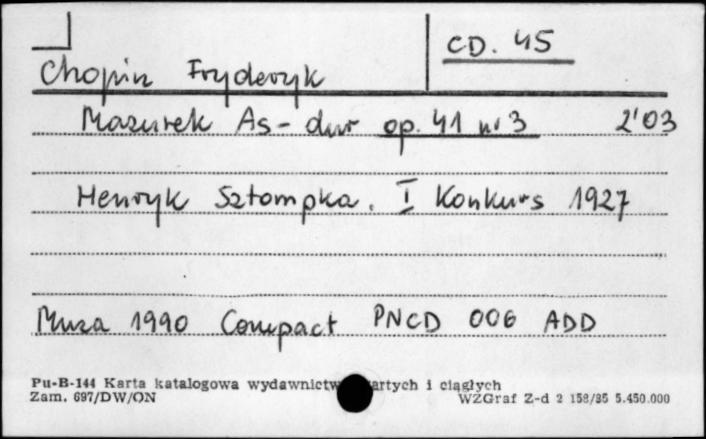 CD. 45
Chopin Fryderyk
Mazurek As-dur op. 41 nr 3 2'03
Henryk Sztompka. I Konkurs 1927
Muza 1990 Compact PNCD 006 ADD
Pu-B-144 Karta katalogowa wydawnictw artych i ciągłych
Zam. 697/DW/ON WZGraf Z-d 2 158/85 5.450.000